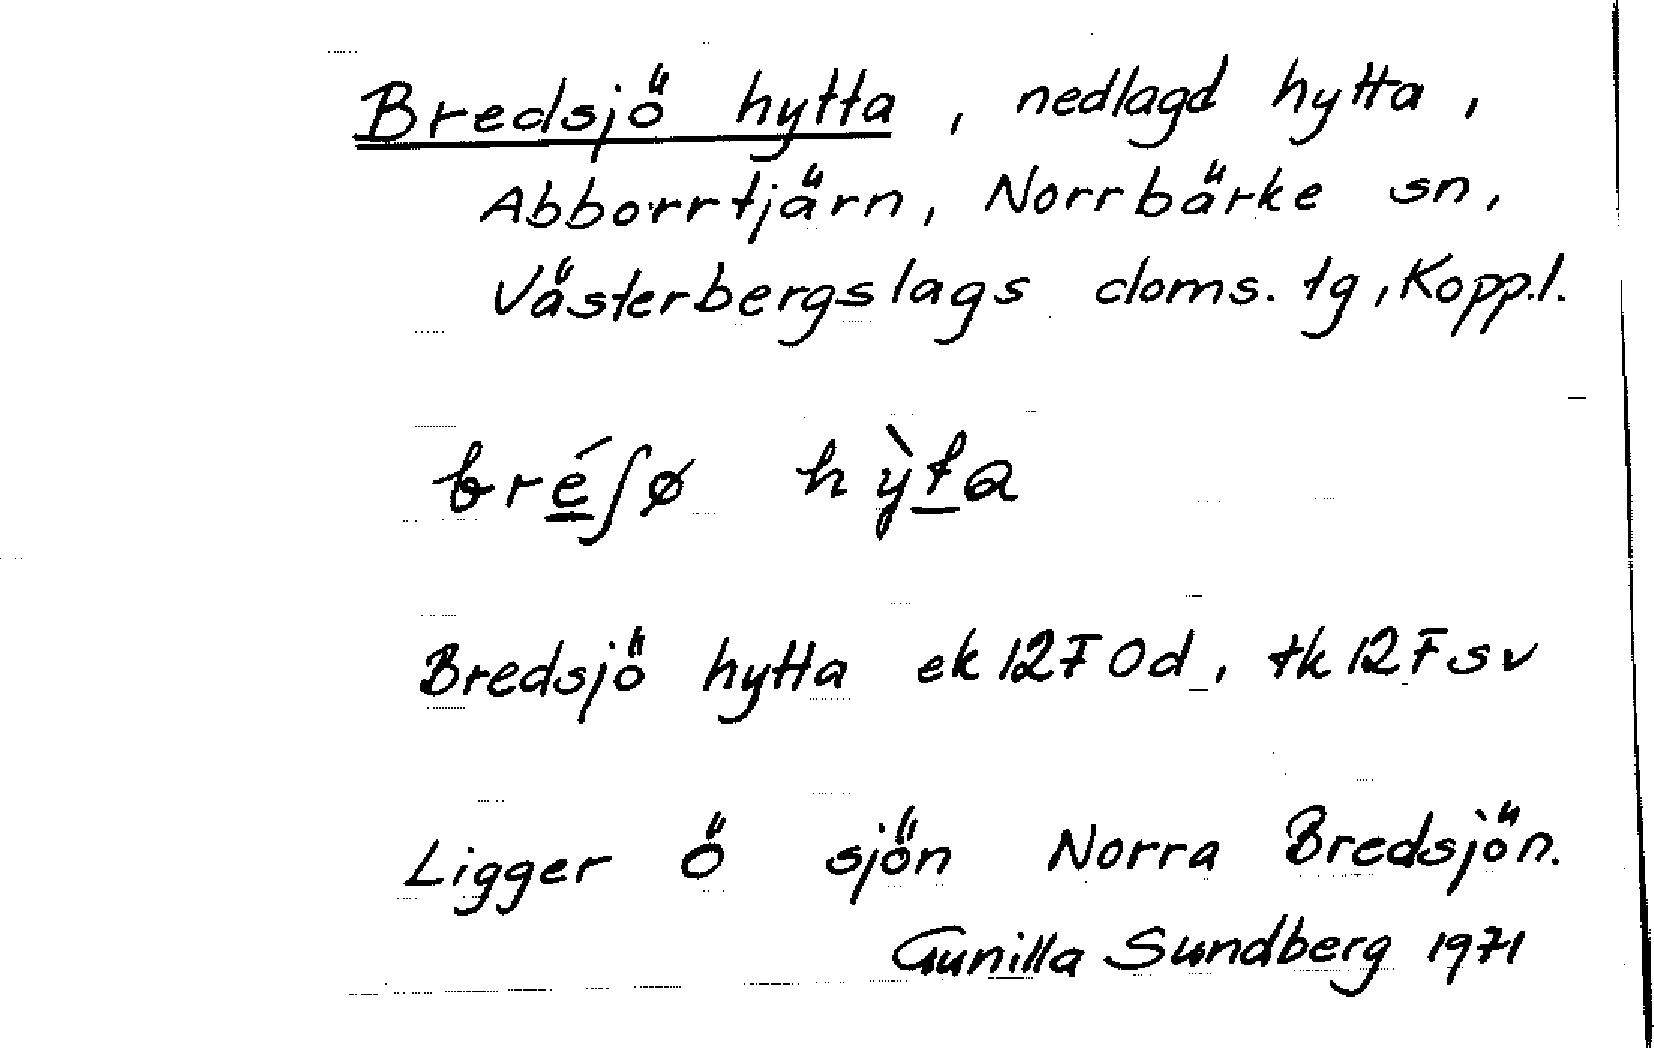 Bredsjö hytta, nedlagd hytta,
Abborrtjärn, Norrbärke sn,
Västerbergslags doms. tg, Kopp.l.
bré̲ʃø hỳt̲a
Bredsjö hytta ek 12F 0d, tk 12F sv
Ligger ö sjön Norra Bredsjön.
Gunilla Sundberg 1971